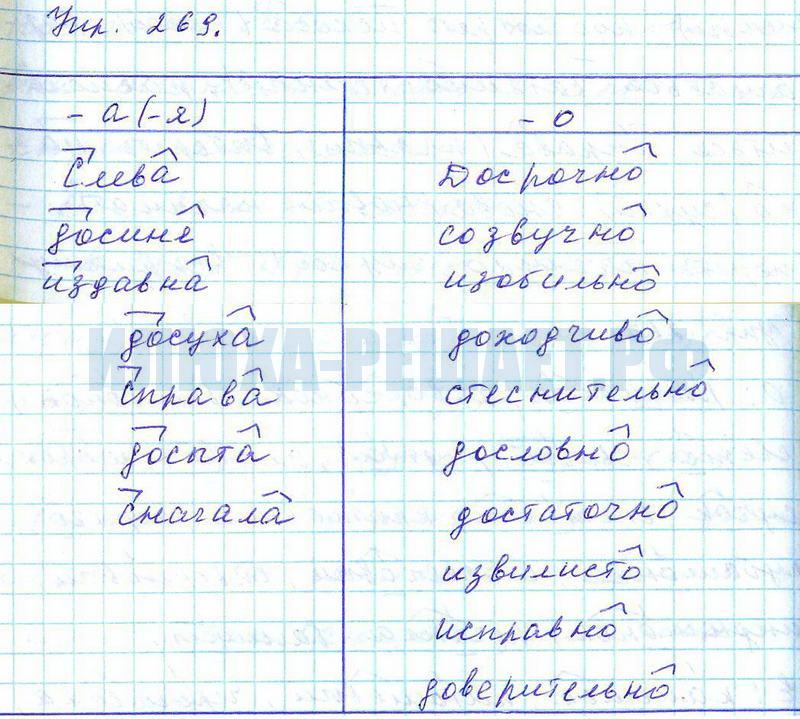 Упр. 269.
- а (-я) - о
Слева Досрочно
досиня созвучно
издавна изобильно
досуха доходчиво
справа стеснительно
досыта дословно
сначала достаточно
извилисто
исправно
доверительно.
ИЛЮХА-РЕШАЕТ.РФ